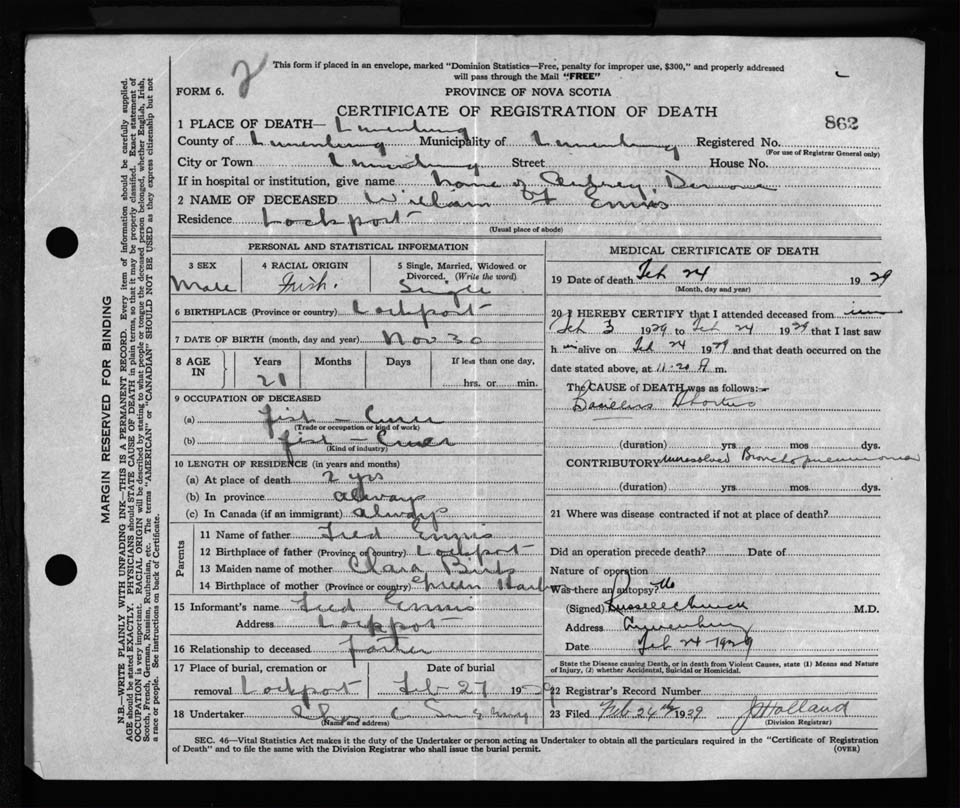 This form if placed in an envelope, marked "Dominion Statistics—Free, penalty for improper use, $300," and properly addressed
will pass through the Mail "FREE"
2
FORM 6.
PROVINCE OF NOVA SCOTIA
CERTIFICATE OF REGISTRATION OF DEATH
862
1 PLACE OF DEATH— Lunenburg
County of Lunenburg Municipality of Lunenburg Registered No.
(For use of Registrar General only)
City or Town Lunenburg Street House No.
If in hospital or institution, give name home of
2 NAME OF DECEASED William Ennis
Residence Lockport
(Usual place of abode)
PERSONAL AND STATISTICAL INFORMATION
3 SEX
Male
4 RACIAL ORIGIN
Irish.
5 Single, Married, Widowed or
Divorced. (Write the word)
Single
6 BIRTHPLACE (Province or country) Lockport
7 DATE OF BIRTH (month, day and year) Nov 30
8 AGE
IN
Years
Months
Days
If less than one day,
21
hrs. or min.
9 OCCUPATION OF DECEASED
(a) Fish —
(Trade or occupation or kind of work)
(b) Fish —
(Kind of industry)
10 LENGTH OF RESIDENCE (in years and months)
(a) At place of death 2 yrs
(b) In province always
(c) In Canada (if an immigrant) always
Parents
11 Name of father Fred Ennis
12 Birthplace of father (Province or country) Lockport
13 Maiden name of mother Clara
14 Birthplace of mother (Province or country) Green Harbor
15 Informant's name Fred Ennis
Address Lockport
16 Relationship to deceased father
17 Place of burial, cremation or
removal Lockport
Date of burial
Feb 27 1929
18 Undertaker Chas C
(Name and address)
MEDICAL CERTIFICATE OF DEATH
19 Date of death Feb 24 1929
(Month, day and year)
20 I HEREBY CERTIFY that I attended deceased from
Feb 3 1929 to Feb 24 1929 that I last saw
h im alive on Feb 24 1929 and that death occurred on the
date stated above, at 11.20 m.
The CAUSE of DEATH was as follows:—
(duration) yrs mos dys.
CONTRIBUTORY unresolved Bronchopneumonia
(duration) yrs. mos. dys.
21 Where was disease contracted if not at place of death?
Did an operation precede death? Date of
Nature of operation
Was there an autopsy? No
(Signed) M.D.
Address Lunenburg
Date Feb 24 1929
State the Disease causing Death, or in death from Violent Causes, state (1) Means and Nature
of Injury, (2) whether Accidental, Suicidal or Homicidal.
22 Registrar's Record Number
23 Filed Feb 24th 1929 J Holland
(Division Registrar)
SEC. 46—Vital Statistics Act makes it the duty of the Undertaker or person acting as Undertaker to obtain all the particulars required in the "Certificate of Registration
of Death" and to file the same with the Division Registrar who shall issue the burial permit.
(OVER)
MARGIN RESERVED FOR BINDING
N.B.—WRITE PLAINLY WITH UNFADING INK—THIS IS A PERMANENT RECORD. Every item of information should be carefully supplied.
AGE should be stated EXACTLY. PHYSICIANS should STATE CAUSE OF DEATH in plain terms, so that it may be properly classified. Exact statement of
OCCUPATION is very important. RACIAL ORIGIN will be described by stating to what people or tongue the deceased person belonged, whether English, Irish,
Scotch, French, German, Russian, Ruthenian, etc. The terms "AMERICAN" or "CANADIAN" SHOULD NOT BE USED as they express citizenship but not
a race or people. See instructions on back of Certificate.